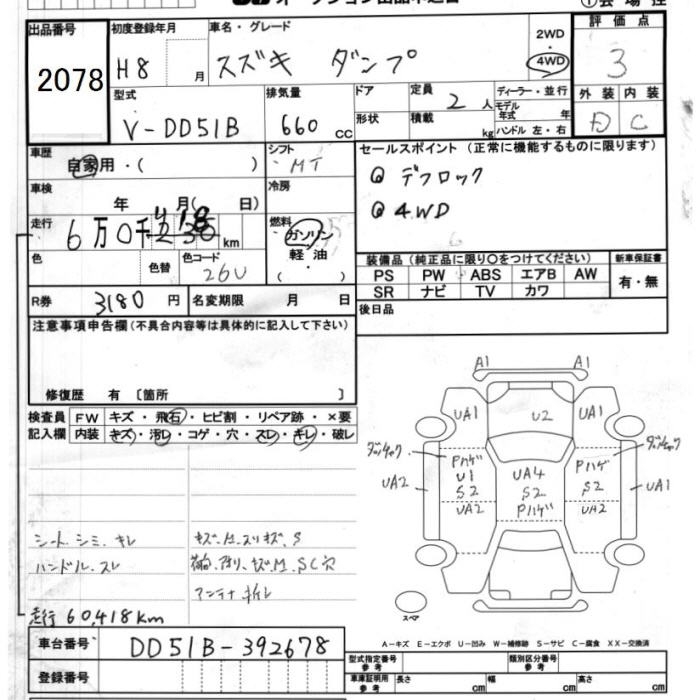 オークション出品申込書
出品番号 初度登録年月 車名・グレード 2WD 評価点
2078 H8 月 スズキ ダンプ 4WD 3
型式 排気量 ドア 定員 ディーラー・並行 外装 内装
V-DD51B 660 cc 2 人 モデル年式 年 D C
形状 積載 kg ハンドル 左・右
車歴 自家用・( ) シフト MT セールスポイント (正常に機能するものに限ります)
車検 年 月( 日) 冷房 デフロック
走行 6万0千 418 km 燃料 ガソリン 4WD
軽油
( )
色 色替 色コード 26U 装備品 (純正品に限り○をつけてください) 新車保証書
PS PW ABS エアB AW 有・無
SR ナビ TV カワ
R券 3180 円 名変期限 月 日 後日品
注意事項申告欄 (不具合内容等は具体的に記入して下さい)
修復歴 有 〔箇所 〕
検査員 FW キズ・飛石・ヒビ割・リペア跡・×要
記入欄 内装 キズ・汚レ・コゲ・穴・スレ・キレ・破レ
A1 A1
UA1 U2 UA1
Pハゲ U1 S2 UA4 S2 Pハゲ Pハゲ S2
UA2 UA2 UA2 UA1
シート シミ キレ
ハンドル スレ
アンテナ
走行 60,418km
スペア
A-キズ E-エクボ U-凹み W-補修跡 S-サビ C-腐食 XX-交換済
車台番号 DD51B-392678
型式指定番号 参考 類別区分番号 参考
登録番号 車庫証明用 参考 長さ cm 幅 cm 高さ cm